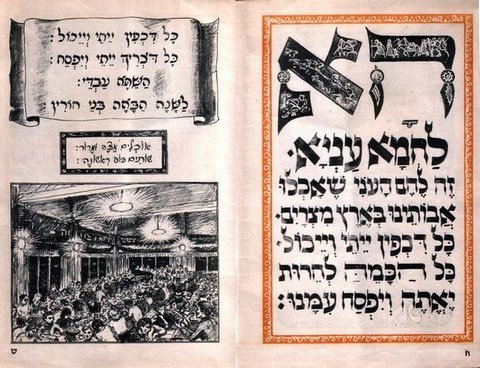 הא
לחמא עניא.
זה לחם העני שאכלו
אבותינו בארץ מצרים.
כל דכפין ייתי וייכול.
כל הכמה לחרות
יאתה ויפסח עמנו:
ח
כל דכפין ייתי וייכול:
כל דצריך ייתי ויפסח:
השתא עבדי:
לשנה הבאה בני חורין:
אוכלים מצה ומרור:
שותים כוס ראשונה:
ט